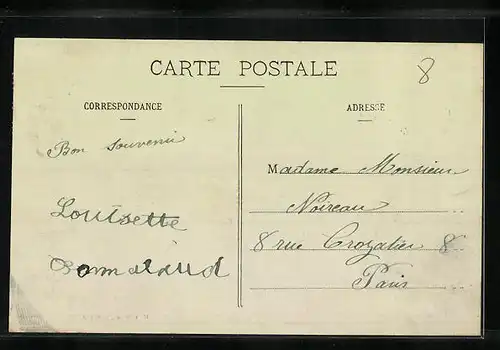 CARTE POSTALE
8
CORRESPONDANCE
ADRESSE
Bon souvenir
Louisette
Madame Monsieur
Noireau
8 rue Crozatier 8
Paris